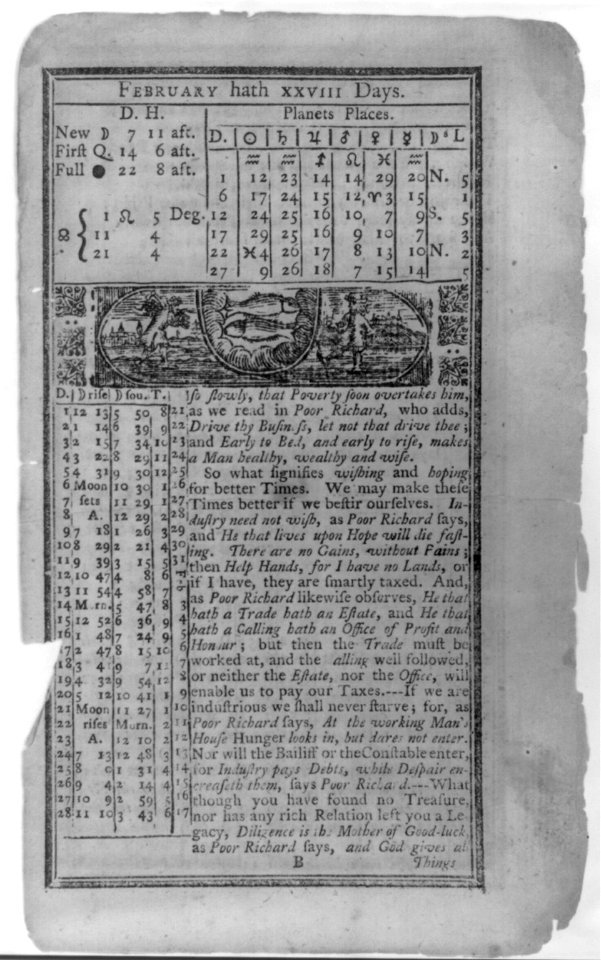 FEBRUARY hath XXVIII Days.
D. H.
New ☽ 7 11 aft.
Firſt Q. 14 6 aft.
Full ● 22 8 aft.
☊ { 1 ♌ 5 Deg.
11 4
21 4
Planets Places.
D. ☉ ♄ ♃ ♂ ♀ ☿ ☽ˢ L
♒ ♒ ♐ ♌ ♓ ♒
1 12 23 14 14 29 20 N. 5
6 17 24 15 12 ♈3 15 1
12 24 25 16 10 7 9 S. 5
17 29 25 16 9 10 7 3
22 ♓4 26 17 8 13 10 N. 2
27 9 26 18 7 15 14 5
D. ☽ riſe ☽ ſou. T.
1 12 13 5 50 8 21
2 1 14 6 39 9 22
3 2 15 7 34 10 23
4 3 22 8 29 11 24
5 4 31 9 30 12 25
6 Moon 10 30 1 26
7 ſets 11 29 1 27
8 A. 12 29 2 28
9 7 18 1 26 3 29
10 8 29 2 21 4 30
11 9 39 3 15 5 31
12 10 47 4 8 6
13 11 54 4 58 7 3
14 Morn. 5 47 8 3
15 12 52 6 36 9 4
16 1 48 7 24 9 5
17 2 47 8 15 10 6
18 3 4 9 7 12 7
19 4 32 9 54 12 8
20 5 12 10 41 1 9
21 Moon 11 27 1 10
22 riſes Morn. 2 11
23 A. 12 10 2 12
24 7 13 12 48 3 13
25 8 1 31 4 14
26 9 4 2 14 4 15
27 10 9 2 59 5 16
28 11 10 3 43 6 17
ſo ſlowly, that Poverty ſoon overtakes him,
as we read in Poor Richard, who adds,
Drive thy Buſineſs, let not that drive thee;
and Early to Bed, and early to riſe, makes
a Man healthy, wealthy and wiſe.
So what ſignifies wiſhing and hoping
for better Times. We may make theſe
Times better if we beſtir ourſelves. In-
duſtry need not wiſh, as Poor Richard ſays,
and He that lives upon Hope will die faſt-
ing. There are no Gains, without Pains;
then Help Hands, for I have no Lands, or
if I have, they are ſmartly taxed. And,
as Poor Richard likewiſe obſerves, He that
hath a Trade hath an Eſtate, and He that
hath a Calling hath an Office of Profit and
Honour; but then the Trade muſt be
worked at, and the alling well followed,
or neither the Eſtate, nor the Office, will
enable us to pay our Taxes.---If we are
induſtrious we ſhall never ſtarve; for, as
Poor Richard ſays, At the working Man's
Houſe Hunger looks in, but dares not enter.
Nor will the Bailiff or the Conſtable enter,
for Induſtry pays Debts, while Deſpair en-
creaſeth them, ſays Poor Richard.---What
though you have found no Treaſure,
nor has any rich Relation left you a Le-
gacy, Diligence is the Mother of Good-luck,
as Poor Richard ſays, and God gives all
B Things